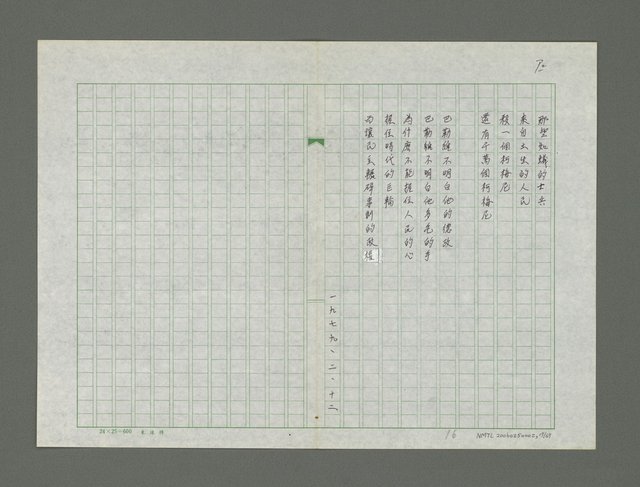 那些如蟻的士兵
來自土生的人民
殺一個柯梅尼
還有千萬個柯梅尼
巴勒維不明白他的德政
巴勒維不明白他多毛的手
為什麼不能握住人民的心
握住時代的巨輪
而讓民主輾碎專制的政權
一九七九、二、十二
24×25=600
16